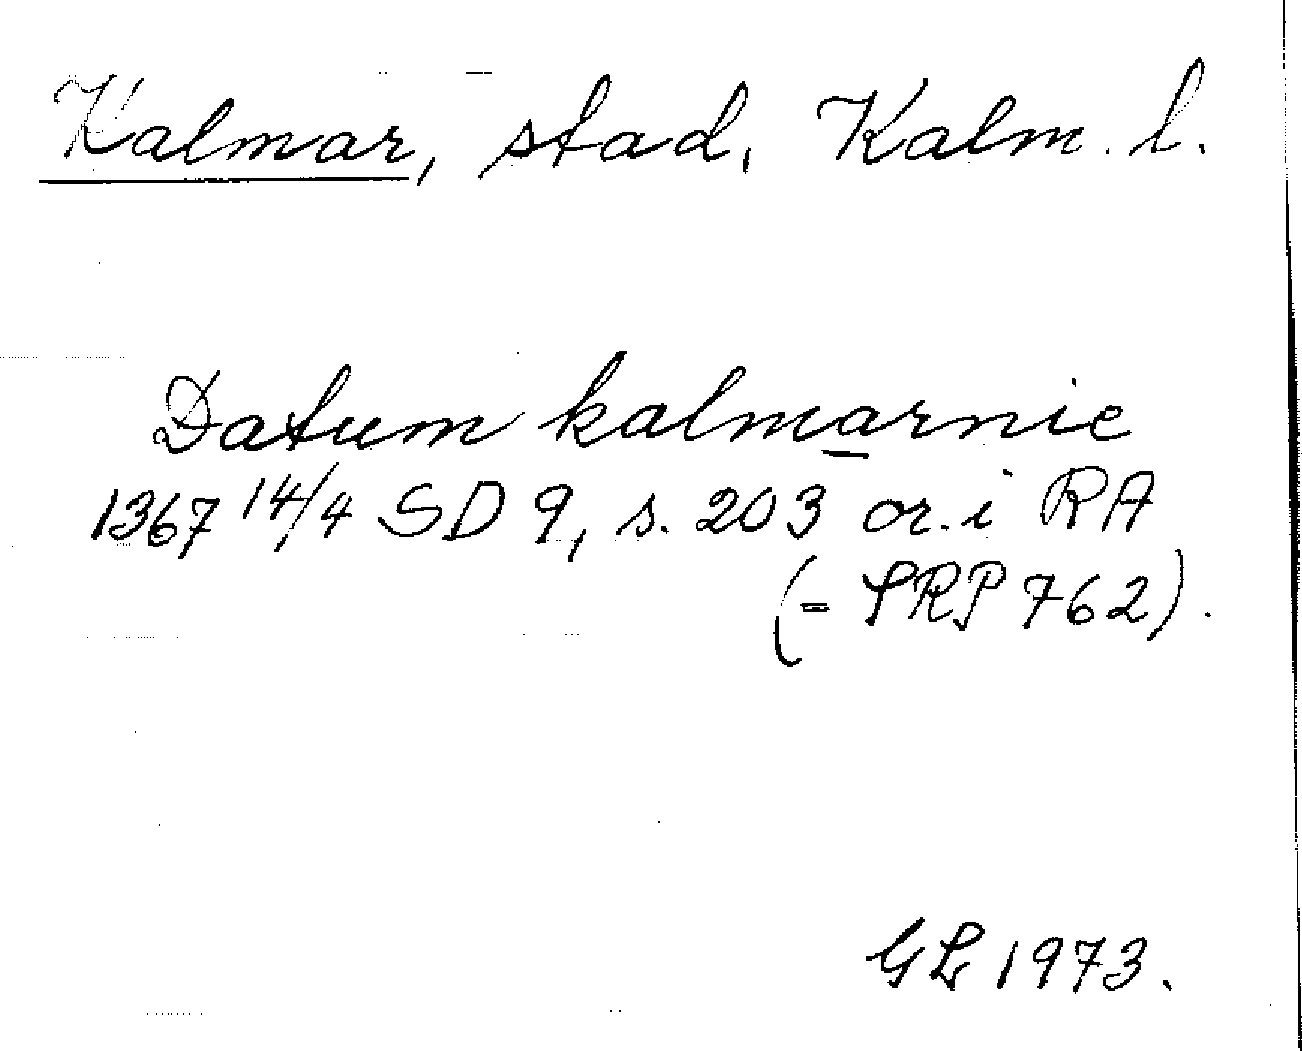 Kalmar, stad, Kalm. l.
Datum kalmarnie
1367 14/4 SD 9, s. 203 or. i RA
(= SRP 762).
GL 1973.